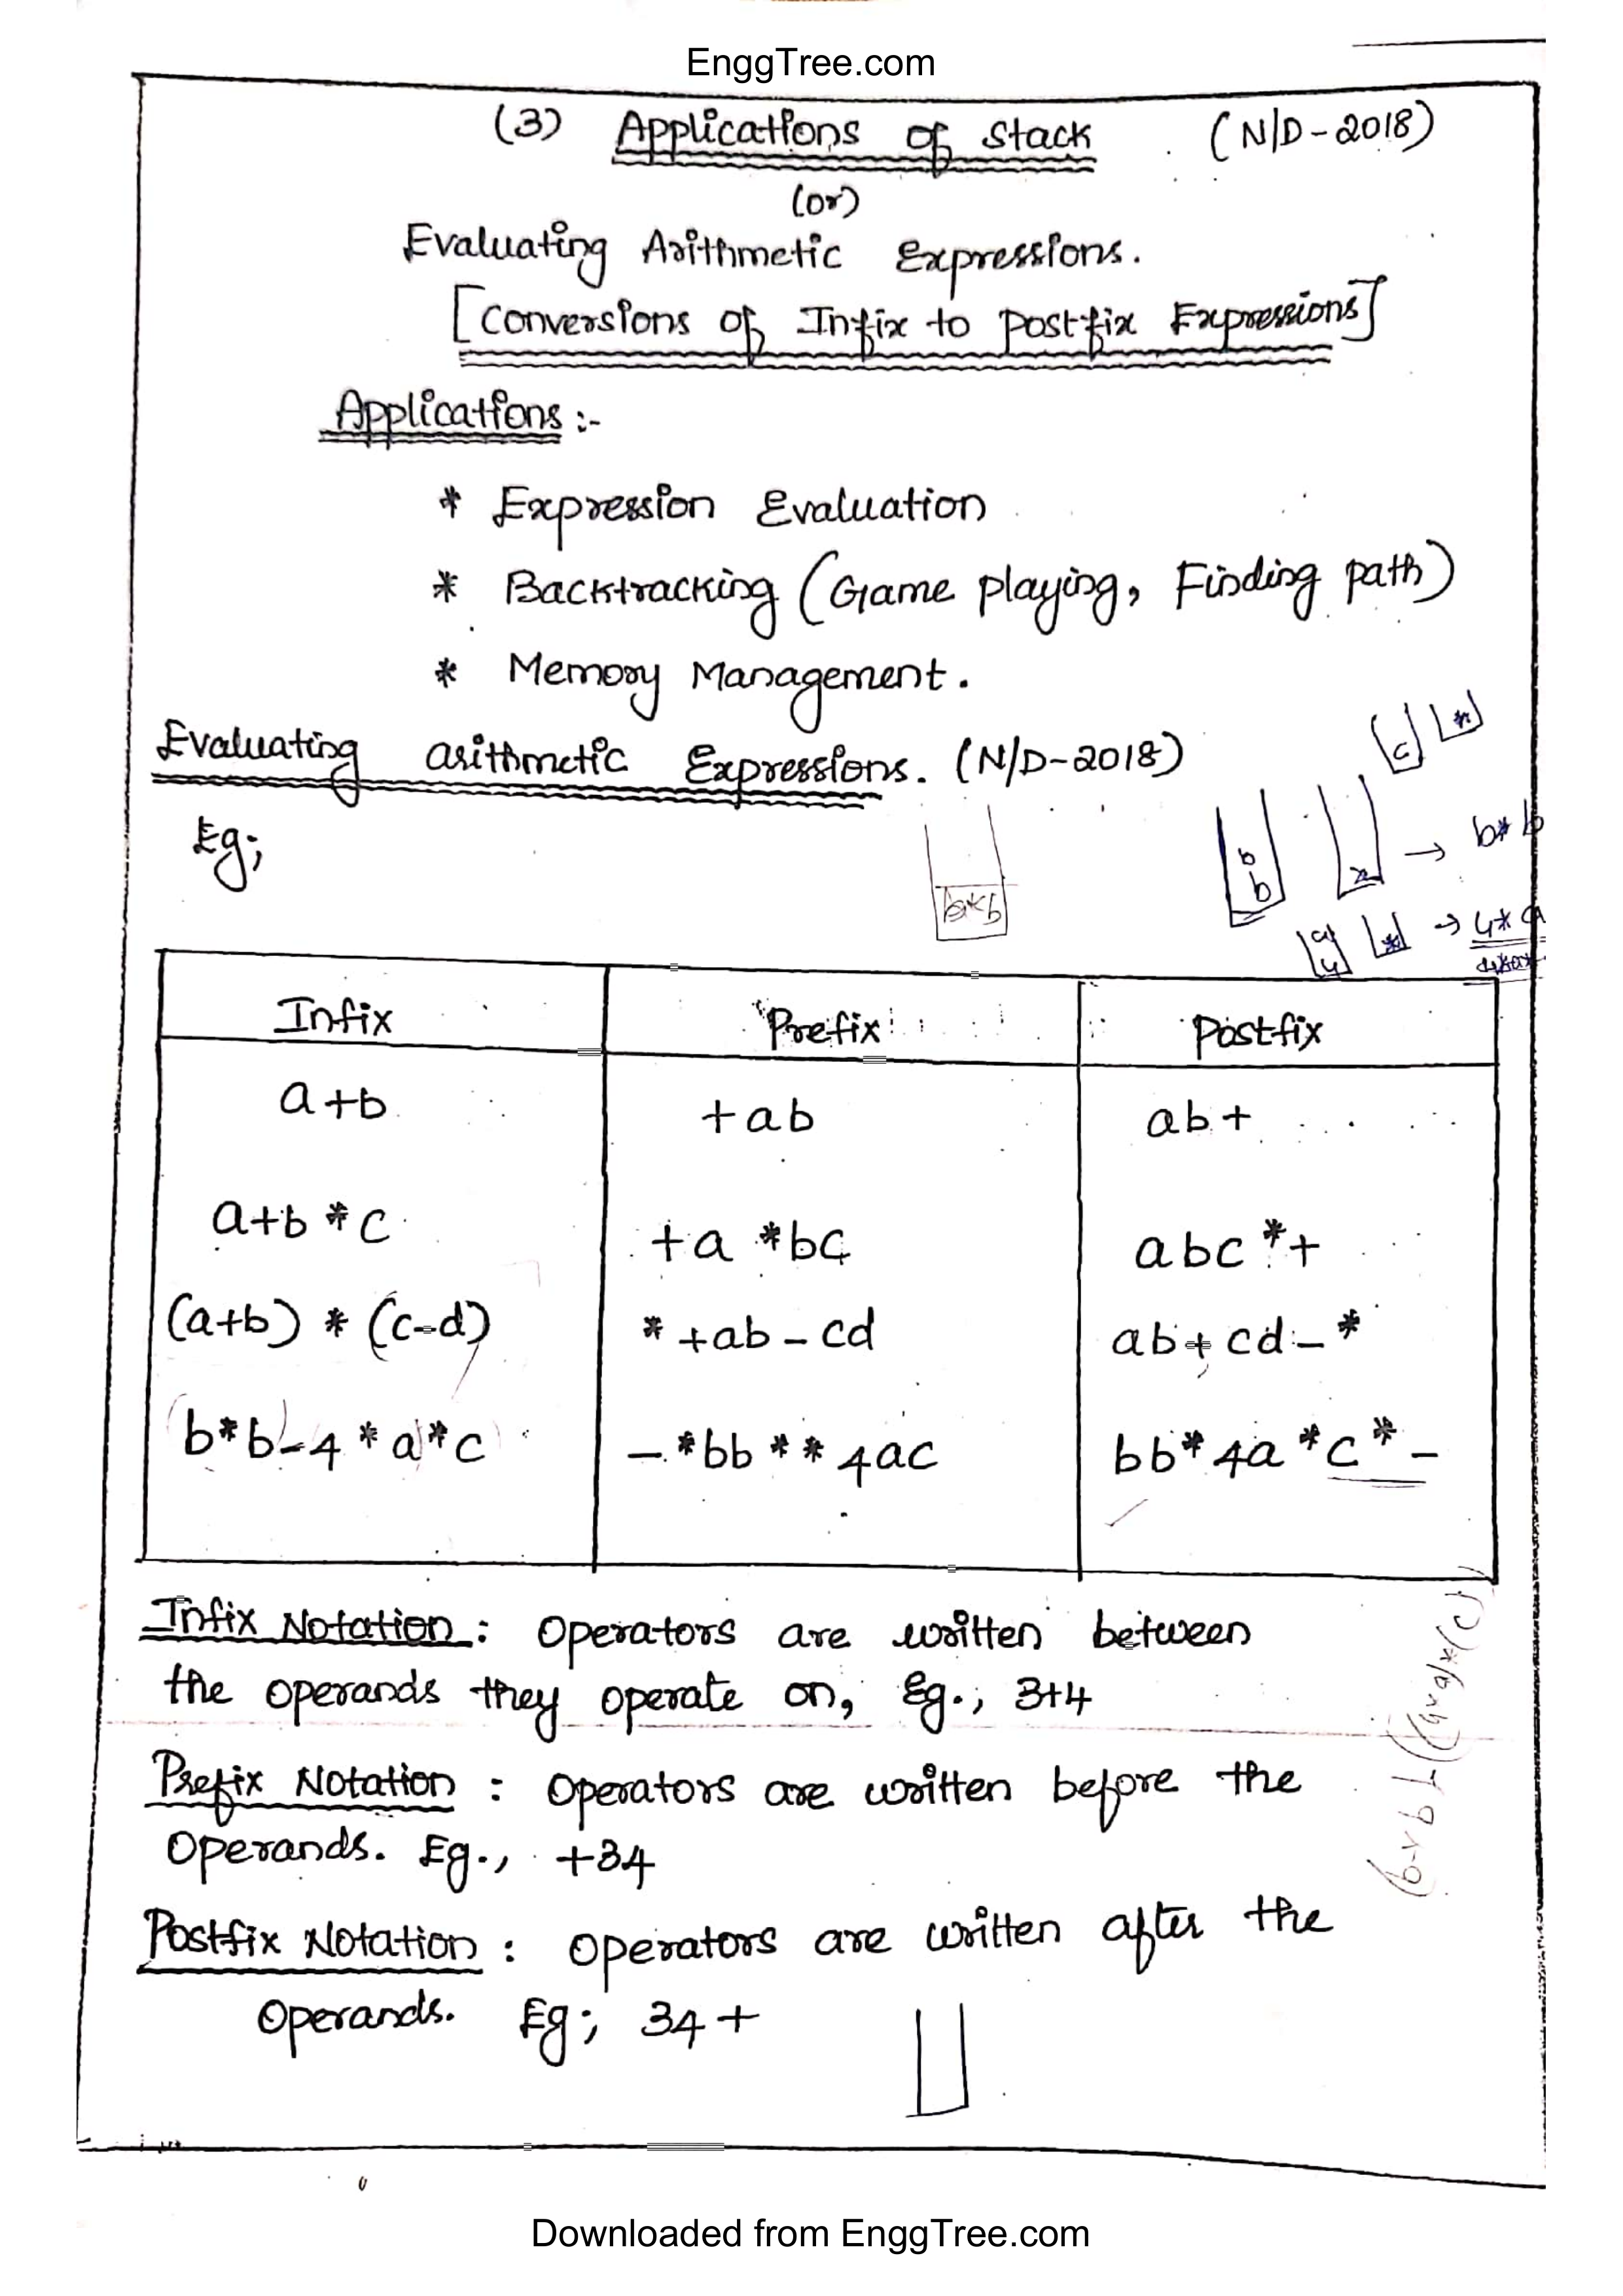 EnggTree.com
(3) Applications of Stack (N/D-2018)
(or)
Evaluating Arithmetic Expressions.
[Conversions of Infix to Postfix Expressions]
Applications :-
* Expression Evaluation
* Backtracking (Game playing, Finding path)
* Memory Management.
Evaluating arithmetic Expressions. (N/D-2018)
Eg;
c *
b b → b*b
a*b
a 4 * → 4*a
Infix Prefix Postfix
a+b +ab ab+
a+b*c +a*bc abc*+
(a+b)*(c-d) *+ab-cd ab+cd-*
b*b-4*a*c -*bb**4ac bb*4a*c*-
Infix Notation : Operators are written between
the operands they operate on, Eg., 3+4
Prefix Notation : Operators are written before the
Operands. Eg., +34
Postfix Notation : Operators are written after the
Operands. Eg; 34+
Downloaded from EnggTree.com